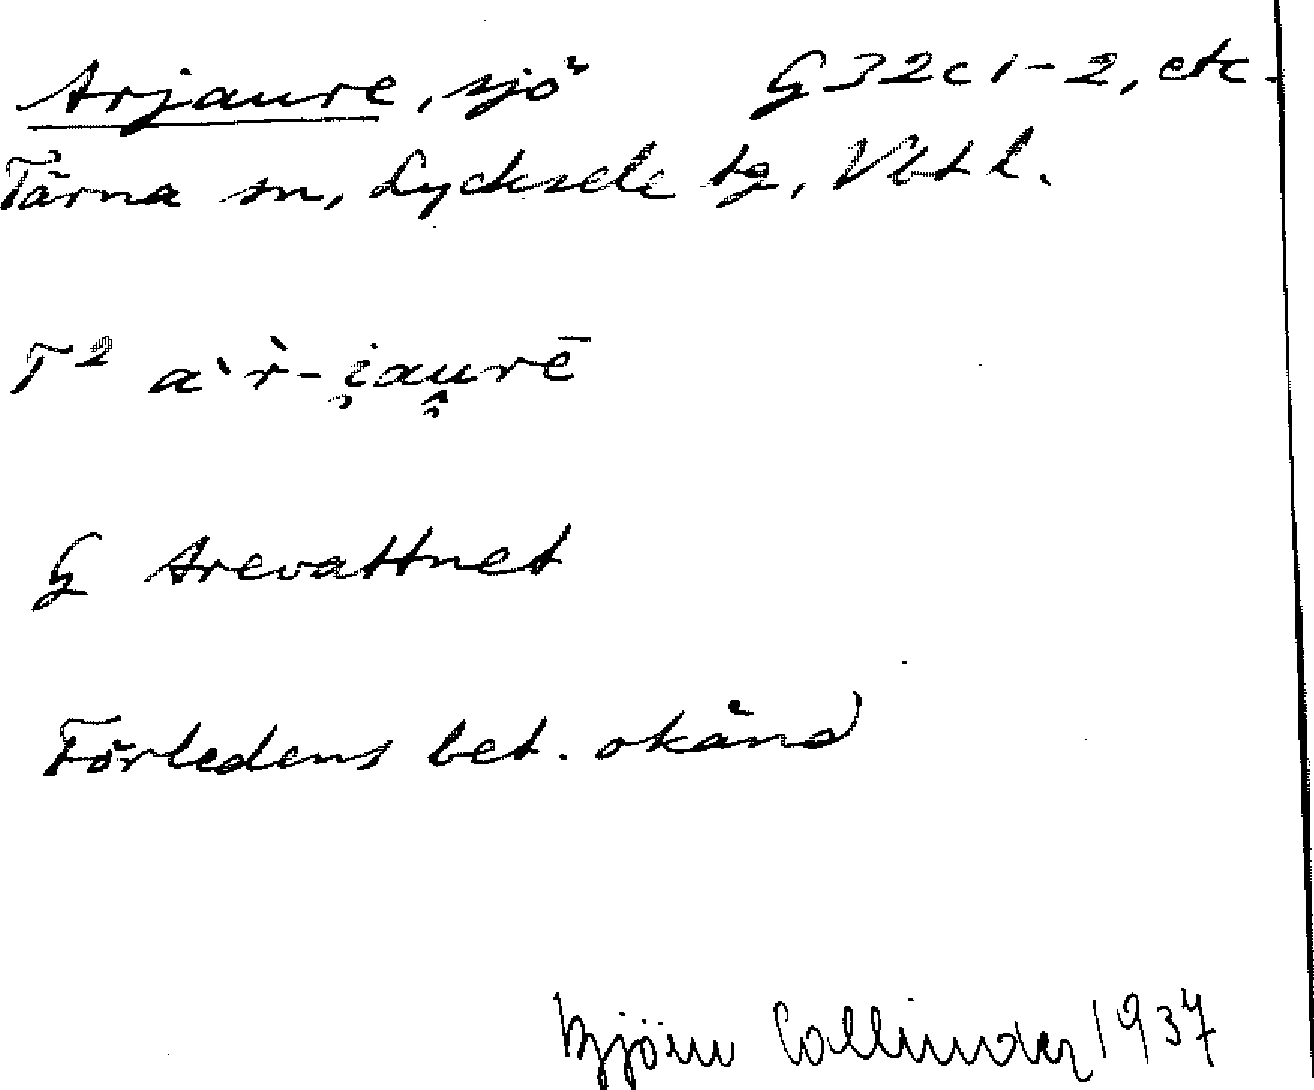 Arjaure, sjö G32c1-2, etc.
Tärna sn, Lycksele tg, Vbtl.
T² a`r̀-i̯au̯rē
G Arevattnet
Förledens bet. okänd
Björn Collinder 1937